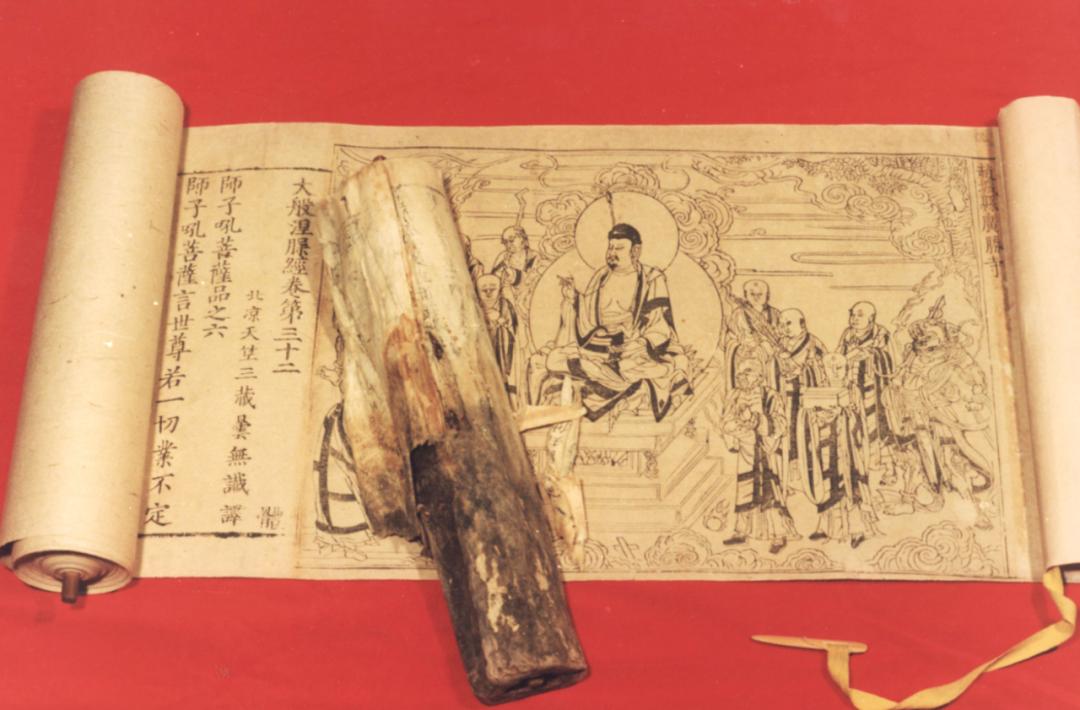 趙城縣廣勝寺
大般涅槃經卷第三十二
北凉天竺三藏曇無讖譯
師子吼菩薩品之六
師子吼菩薩言世尊若一切業不定